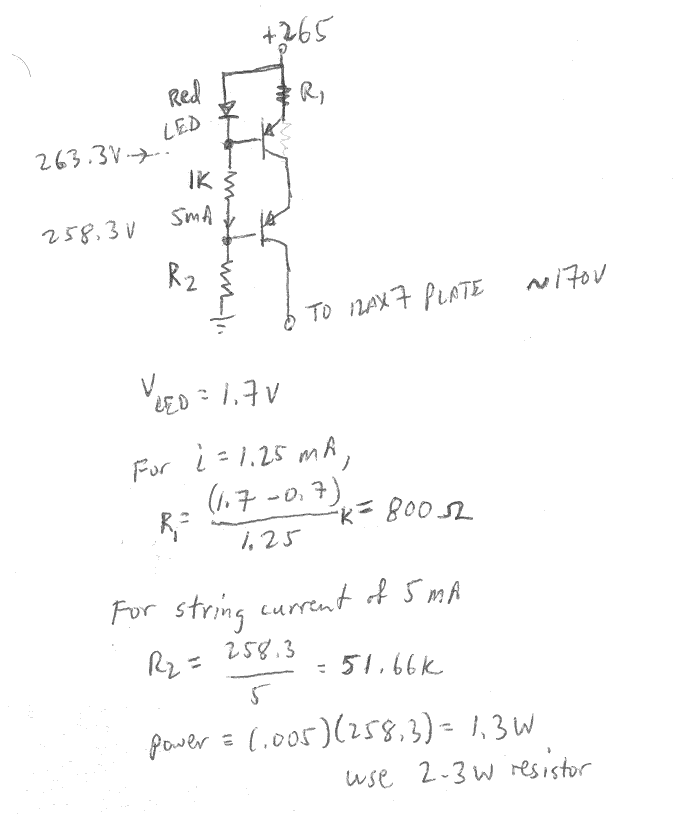 +265
Red
LED
R₁
263.3V→··
1K
5mA
258.3V
R₂
TO 12AX7 PLATE ~170V
V_LED = 1.7V
For i = 1.25 mA,
R₁ = (1.7 - 0.7) / 1.25 K = 800 Ω
For string current of 5 mA
R₂ = 258.3 / 5 = 51.66K
power = (.005)(258.3) = 1.3W
use 2-3W resistor